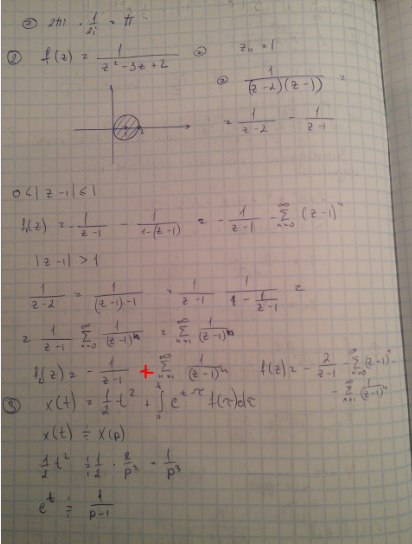 = 2πi · 1/2i = π
② f(z) = 1/(z² - 3z + 2) = z₀ = 1
= 1/((z-2)(z-1)) =
= 1/(z-2) - 1/(z-1)
0 < |z-1| ≤ 1
f₁(z) = - 1/(z-1) - 1/(1-(z-1)) = - 1/(z-1) - ∑_{n=0}^{∞} (z-1)ⁿ
|z-1| > 1
1/(z-2) = 1/((z-1)-1) = 1/(z-1) · 1/(1 - 1/(z-1)) =
= 1/(z-1) ∑_{n=0}^{∞} 1/(z-1)ⁿ = ∑_{n=1}^{∞} 1/(z-1)ⁿ
f₂(z) = - 1/(z-1) + ∑_{n=1}^{∞} 1/(z-1)ⁿ f(z) = - 2/(z-1) - ∑_{n=0}^{∞} (z-1)ⁿ -
- ∑_{n=1}^{∞} 1/(z-1)ⁿ
③ x(t) = 1/2 t² + ∫₀ᵗ e^{t-τ} f(τ)dτ
x(t) ≓ X(p)
1/2 t² ≓ 1/2 · 2/p³ = 1/p³
eᵗ ≓ 1/(p-1)